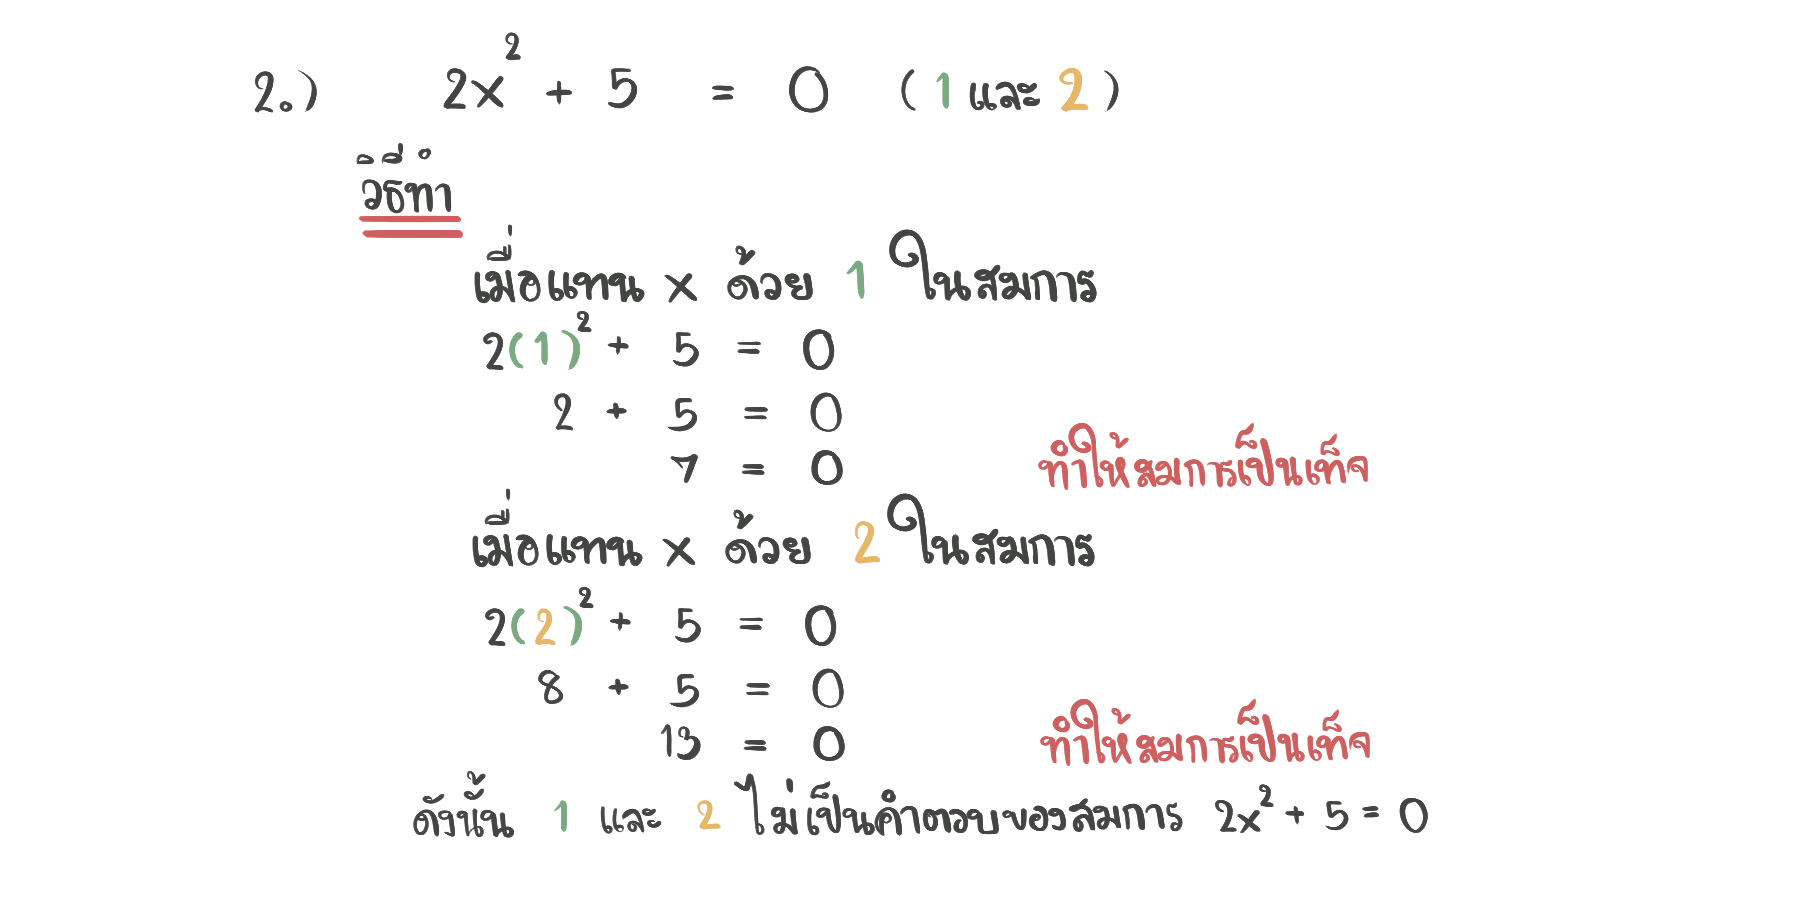 2.) 2x² + 5 = 0 (1 และ 2)
วิธีทำ
เมื่อแทน x ด้วย 1 ในสมการ
2(1)² + 5 = 0
2 + 5 = 0
7 = 0 ทำให้สมการเป็นเท็จ
เมื่อแทน x ด้วย 2 ในสมการ
2(2)² + 5 = 0
8 + 5 = 0
13 = 0 ทำให้สมการเป็นเท็จ
ดังนั้น 1 และ 2 ไม่เป็นคำตอบของสมการ 2x² + 5 = 0